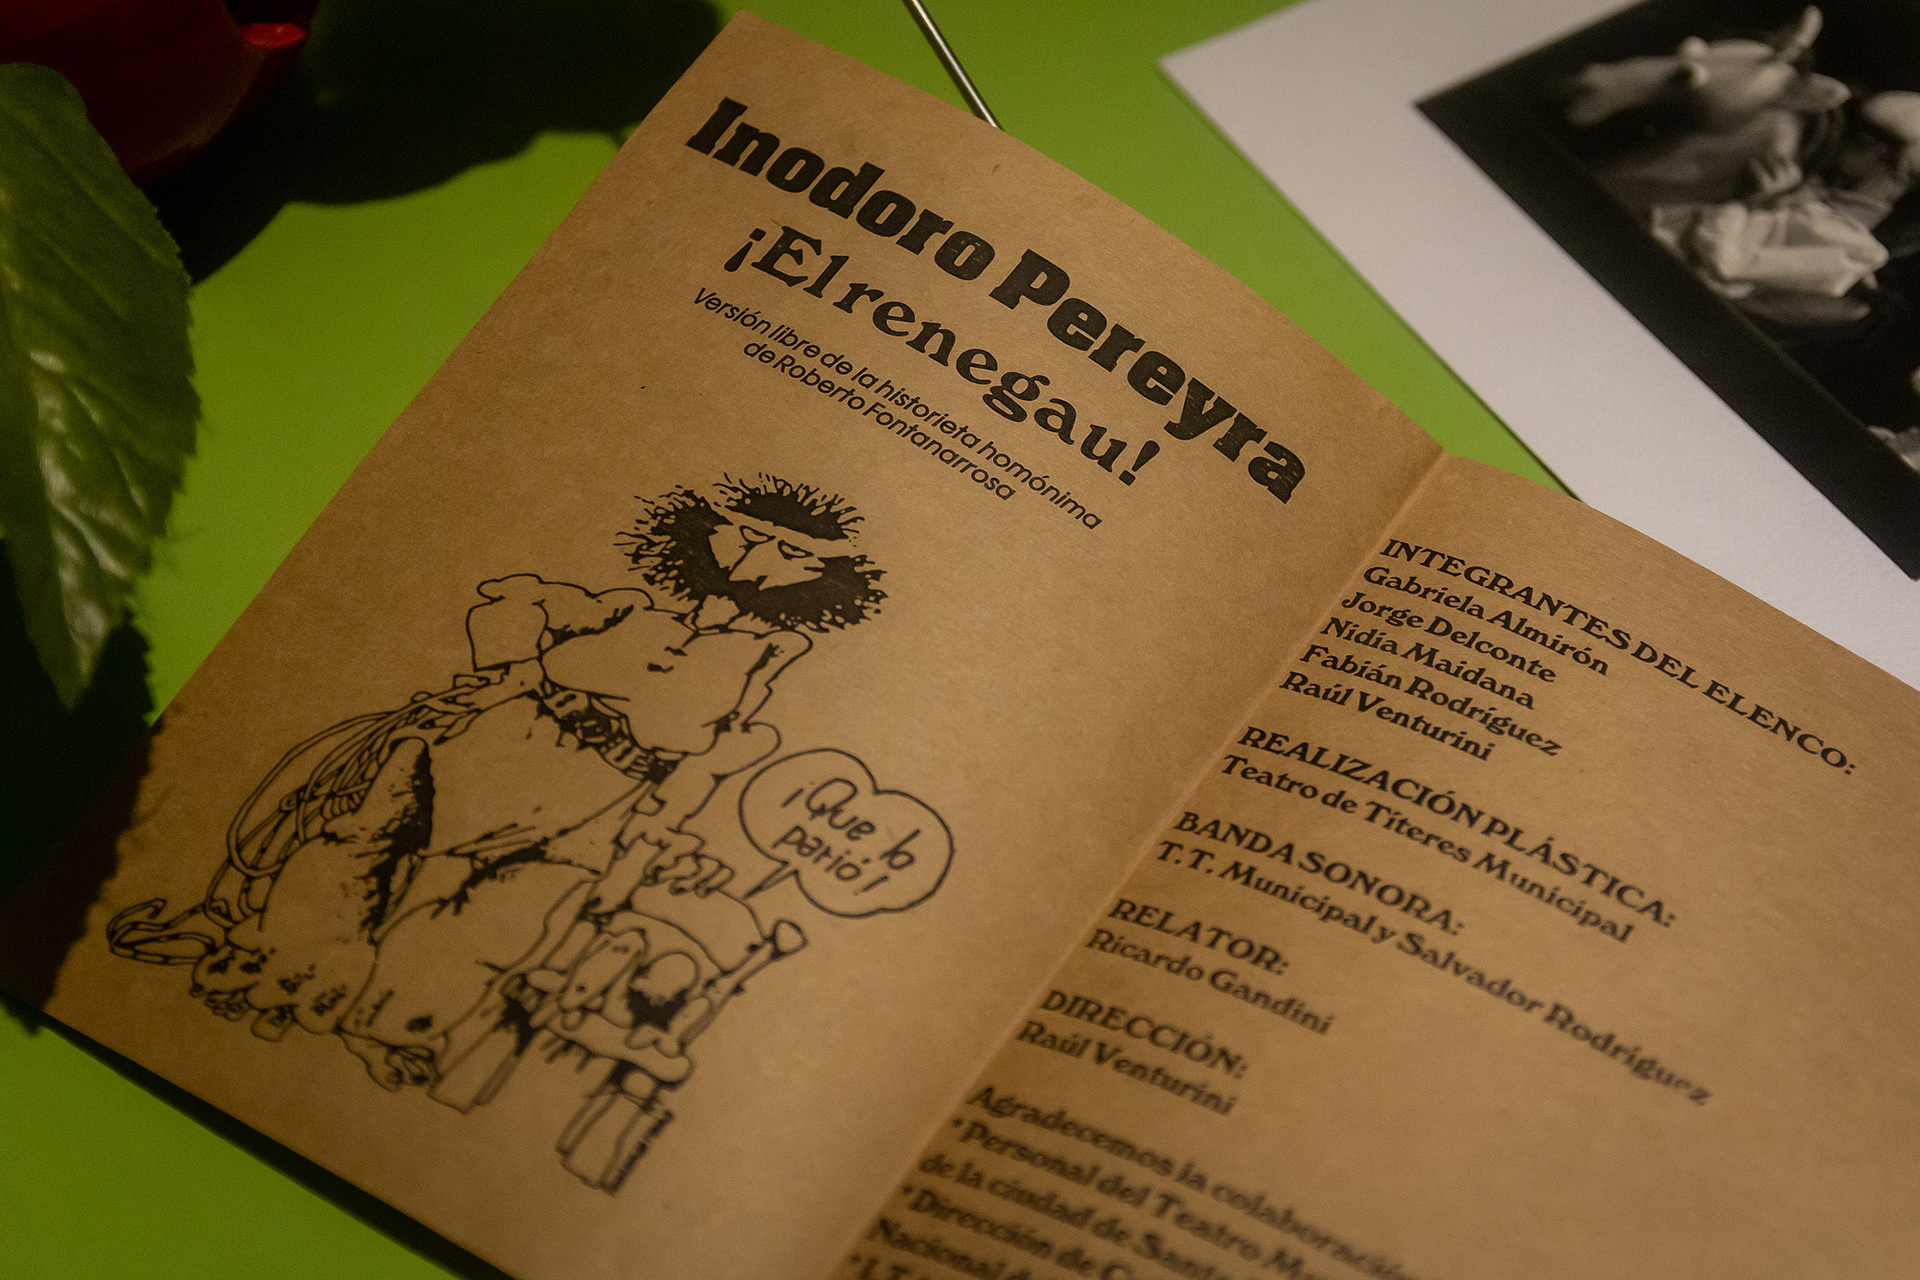 Inodoro Pereyra
¡El renegau!
Versión libre de la historieta homónima
de Roberto Fontanarrosa
¡Que lo
parió!
INTEGRANTES DEL ELENCO:
Gabriela Almirón
Jorge Delconte
Nidia Maidana
Fabián Rodríguez
Raúl Venturini
REALIZACIÓN PLÁSTICA:
Teatro de Títeres Municipal
BANDA SONORA:
T.T. Municipal y Salvador Rodríguez
RELATOR:
Ricardo Gandini
DIRECCIÓN:
Raúl Venturini
Agradecemos la colaboración
*Personal del Teatro
de la ciudad de
*Dirección de
Nacional